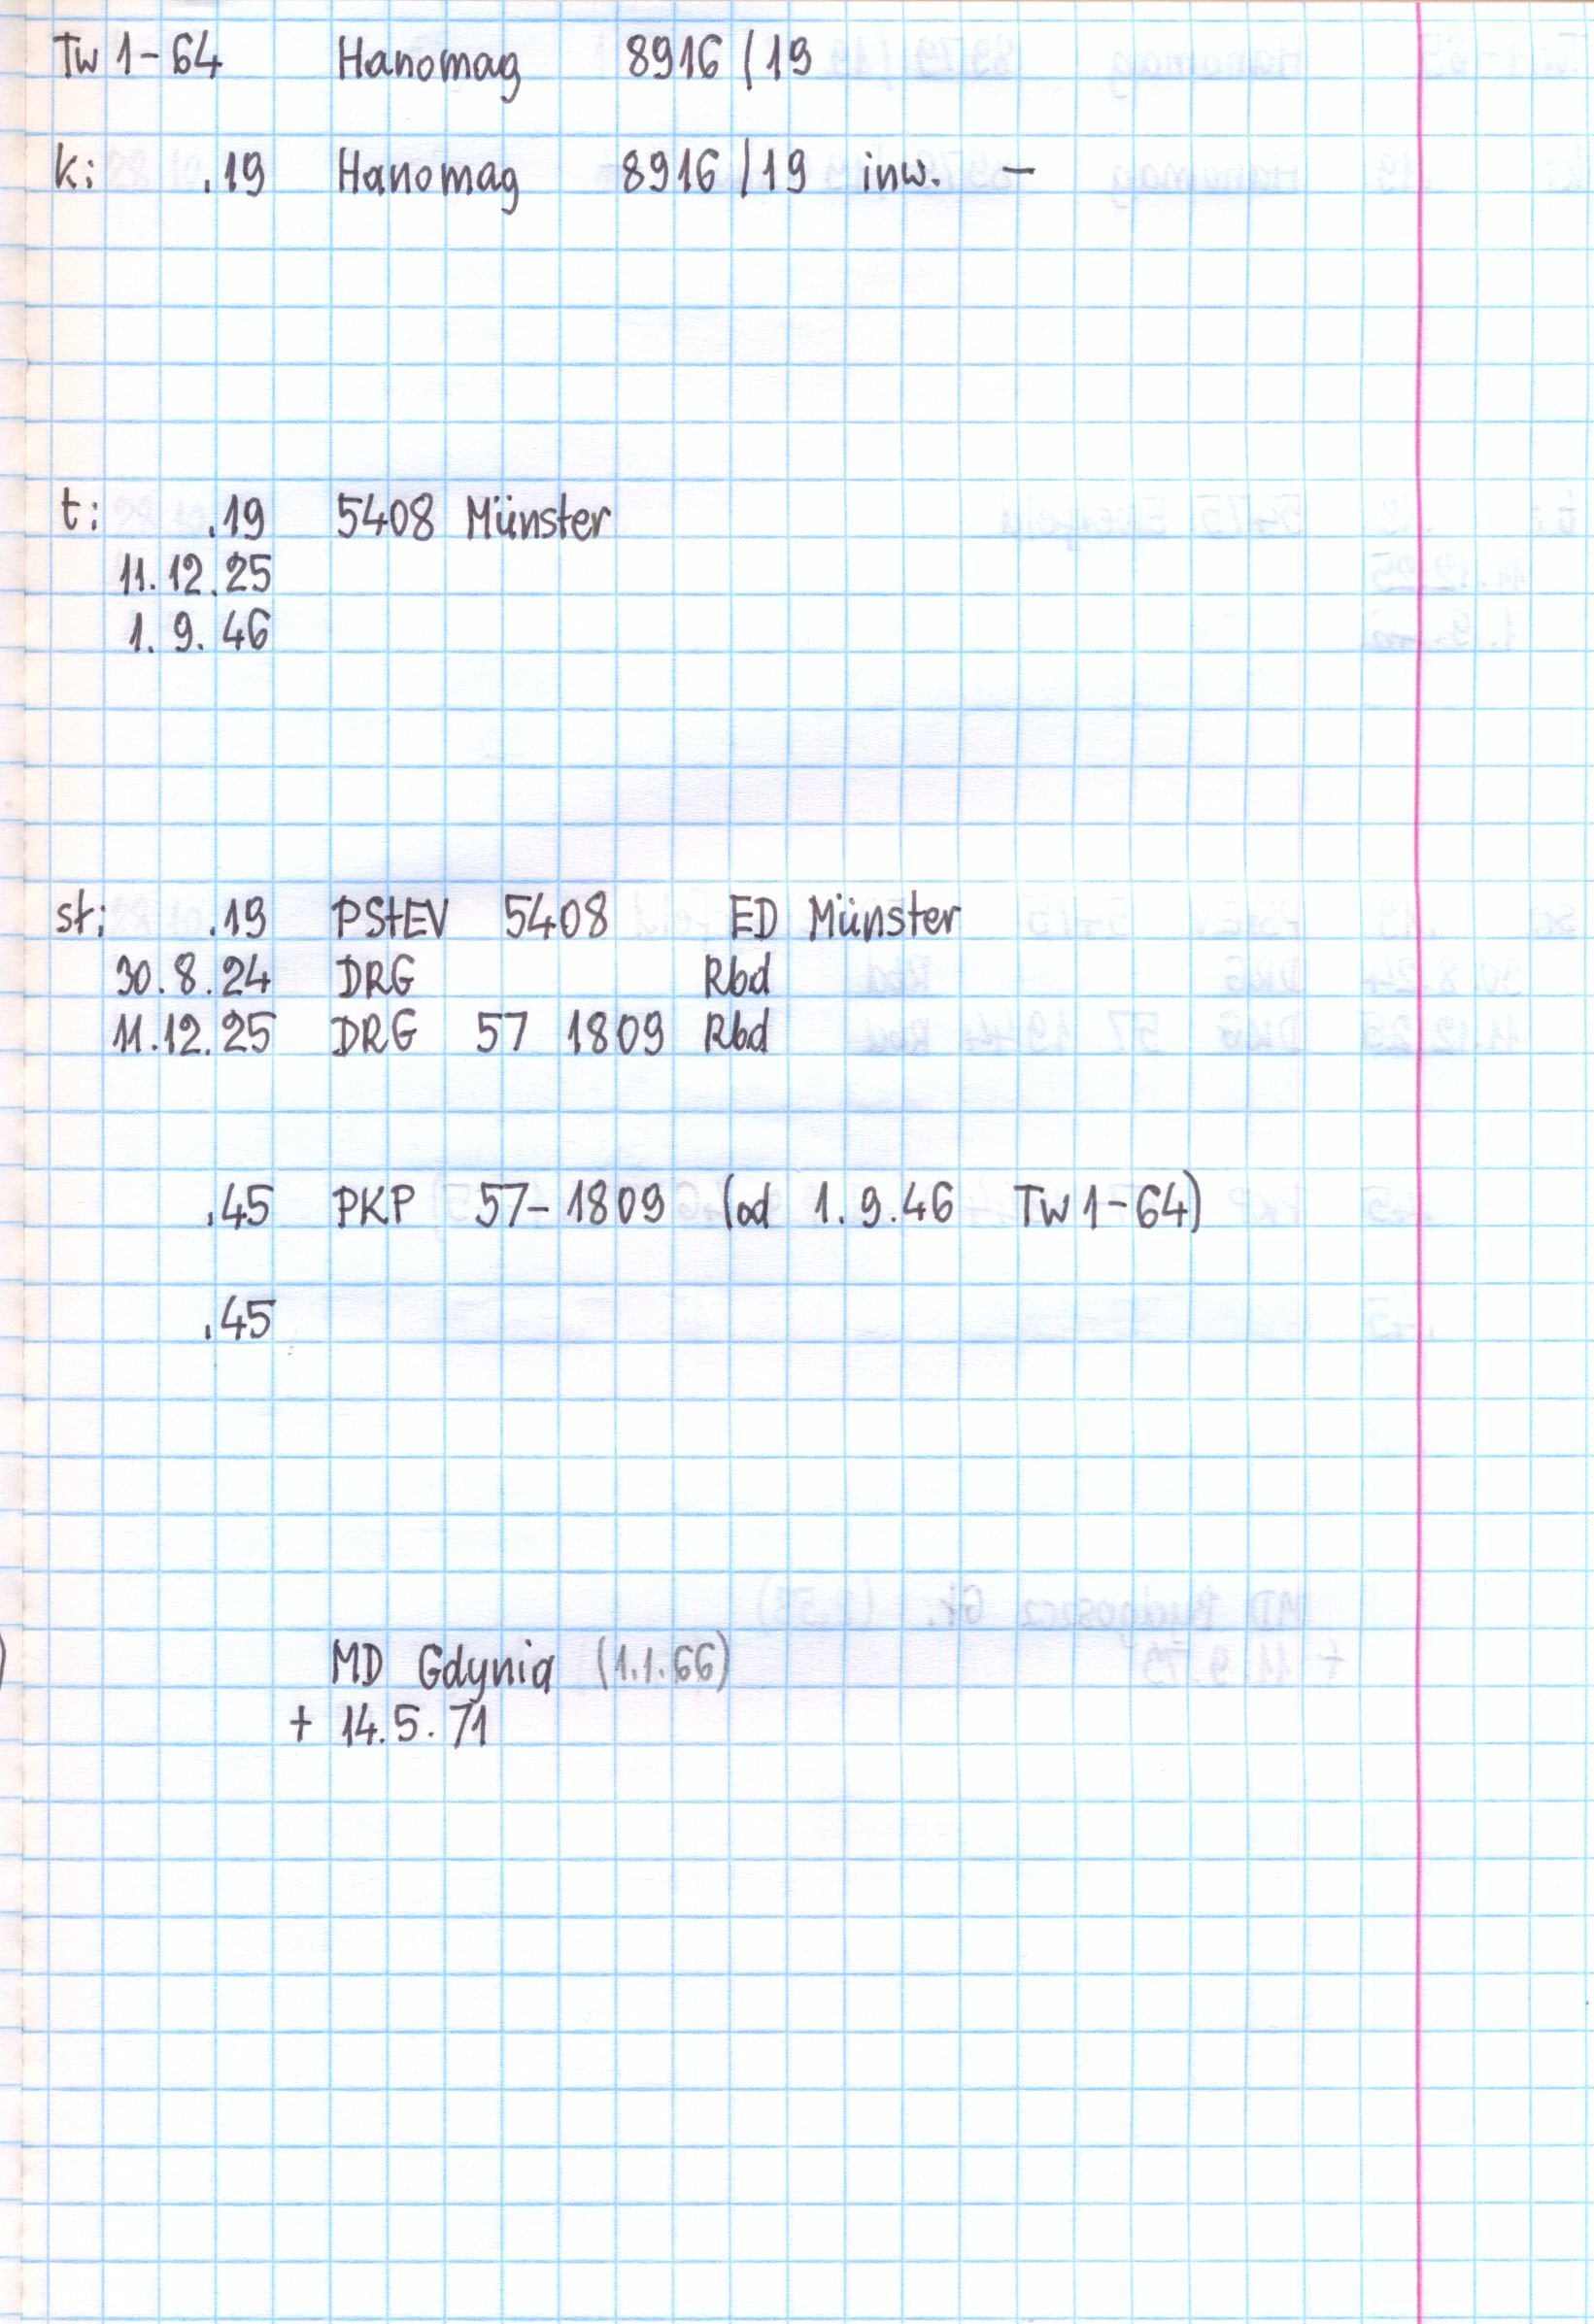 Tw 1-64 Hanomag 8916/19
k: .19 Hanomag 8916/19 inw. -
t: .19 5408 Münster
11.12.25
1.9.46
st: .19 PStEV 5408 ED Münster
30.8.24 DRG Rbd
11.12.25 DRG 57 1809 Rbd
.45 PKP 57-1809 (od 1.9.46 Tw1-64)
.45
MD Gdynia (1.1.66)
+ 14.5.71